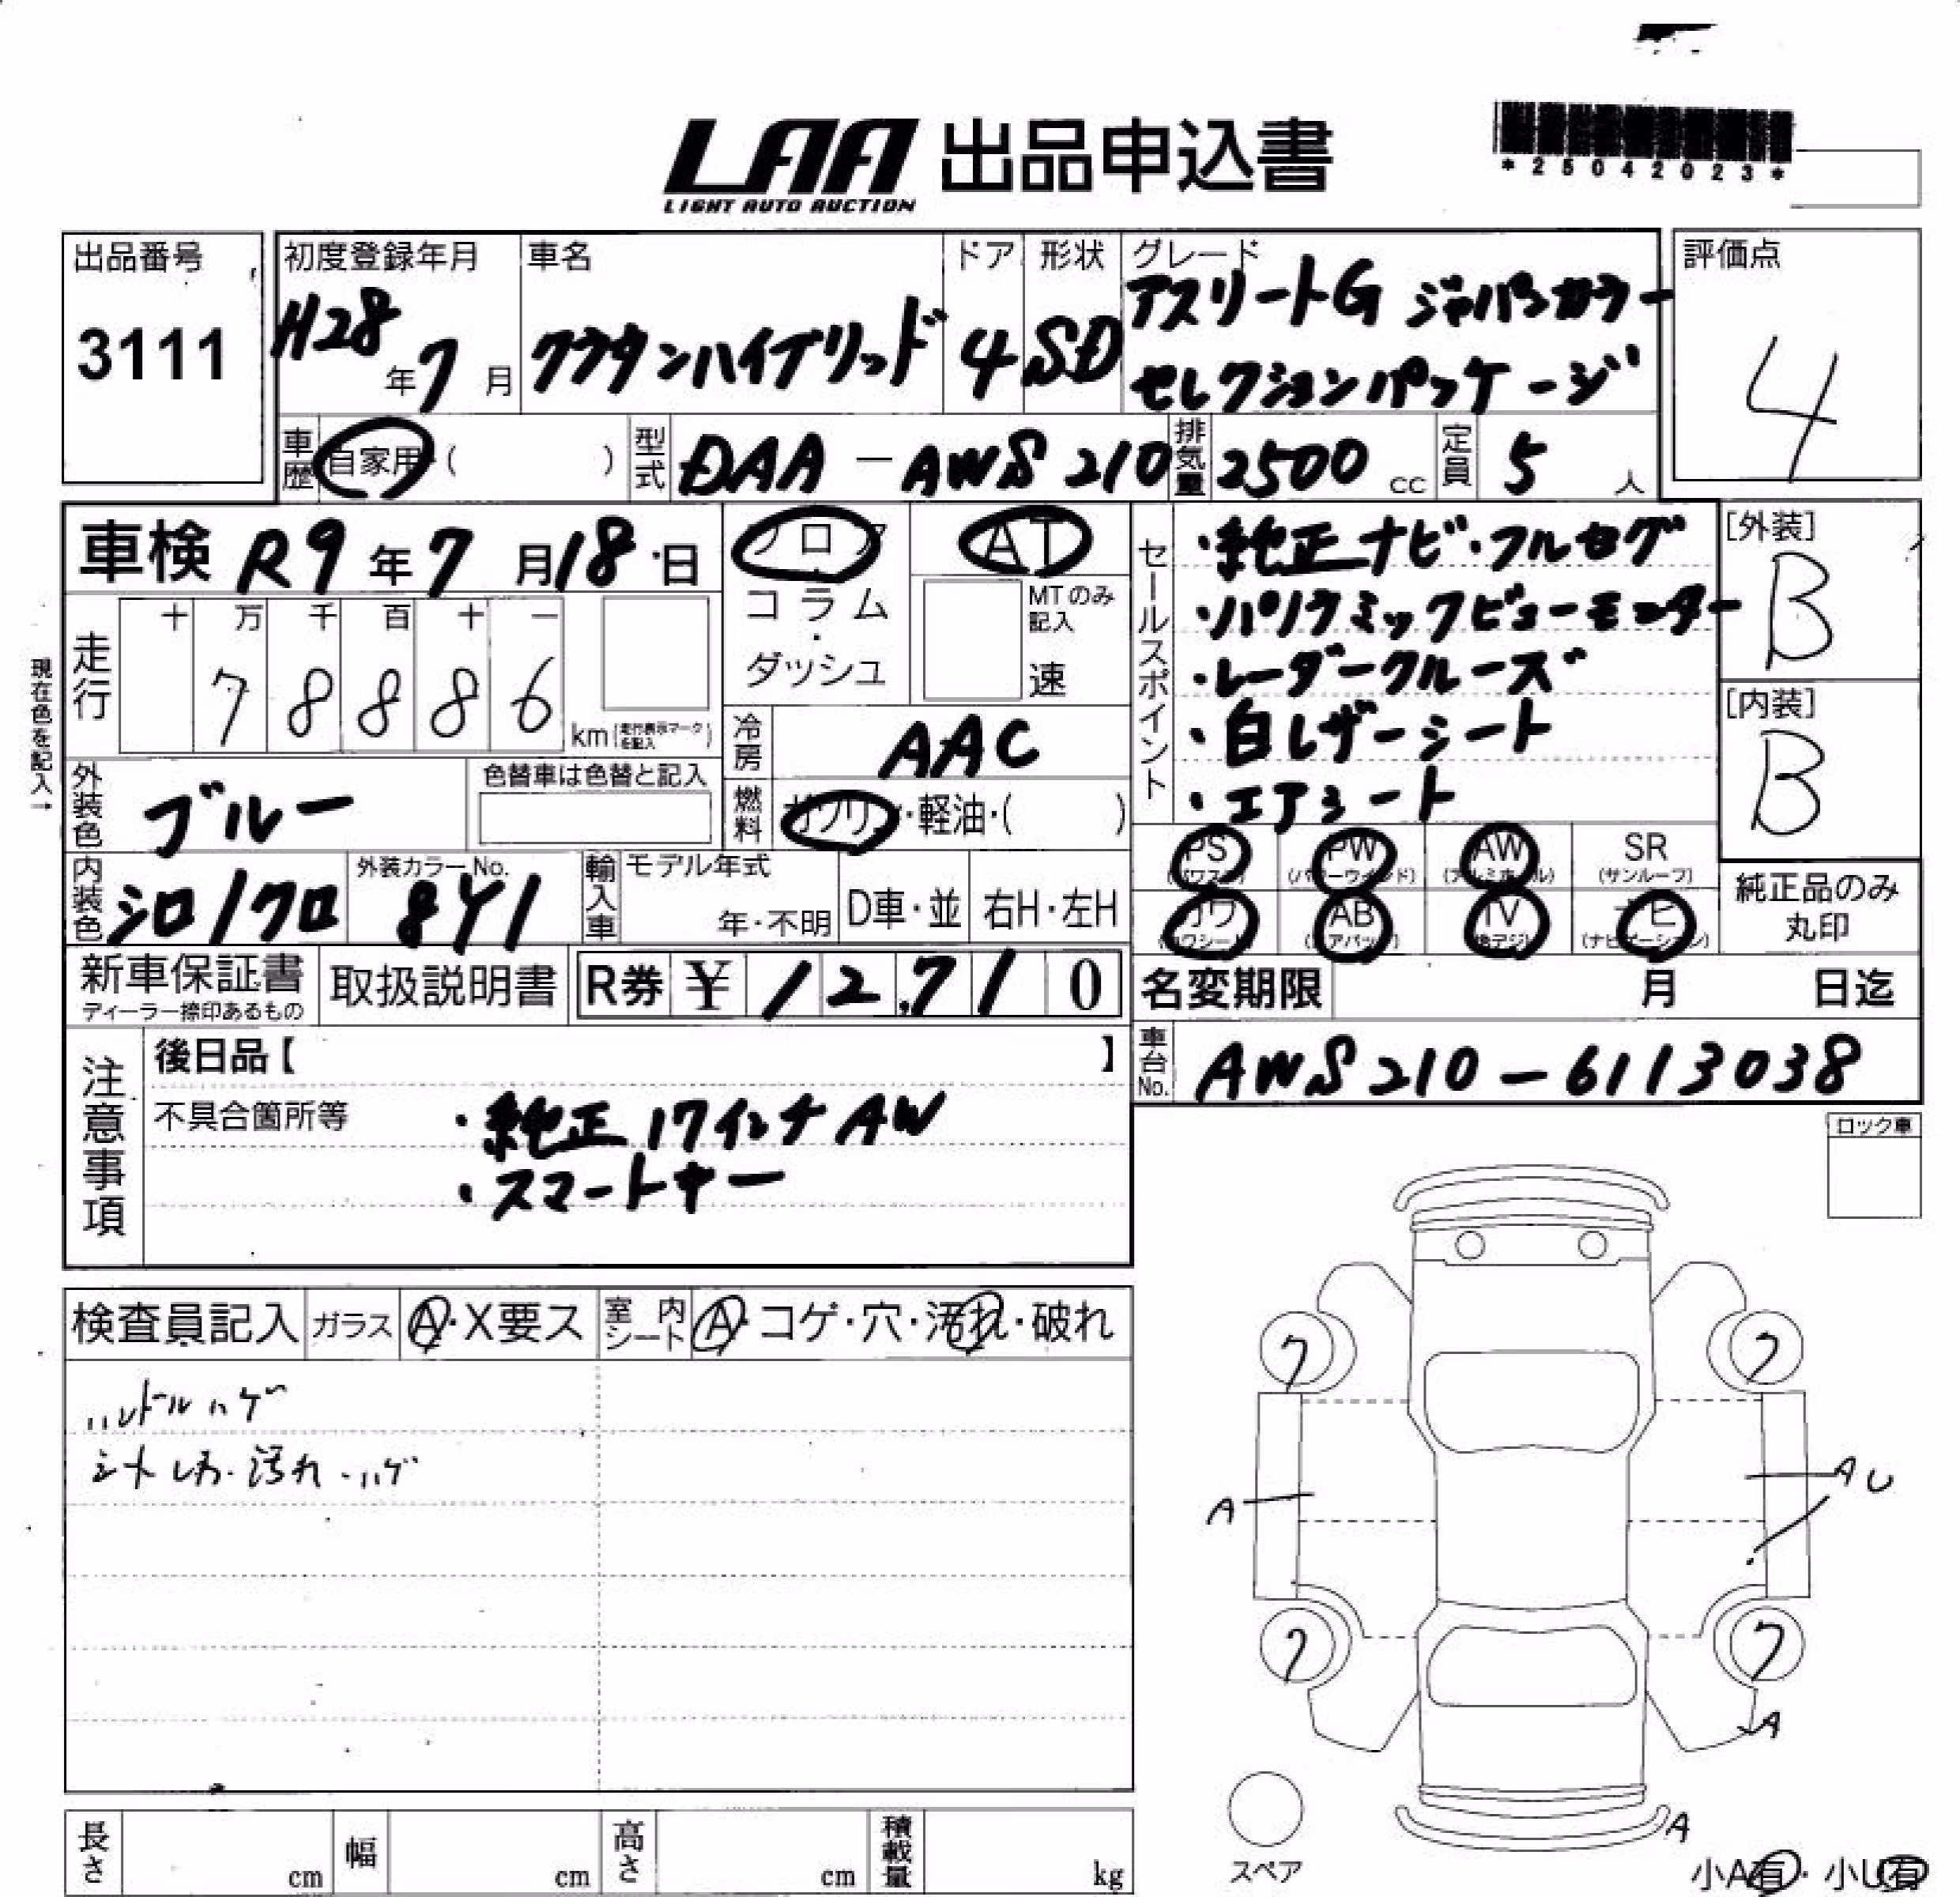 LAA 出品申込書
LIGHT AUTO AUCTION
*25042023*
出品番号
3111
初度登録年月
H28年7月
車名
クラウンハイブリッド
ドア
4
形状
SD
グレード
アスリートG ジャパンカラー
セレクションパッケージ
評価点
4
車歴 自家用・( )
型式 DAA-AWS210
排気量 2500 cc
定員 5 人
車検 R9年7月18日
フロア・コラム・ダッシュ
AT
MTのみ記入
速
セールスポイント
・純正ナビ・フルセグ
・パノラミックビューモニター
・レーダークルーズ
・白レザーシート
・エアシート
[外装]
B
[内装]
B
現在色を記入→
走行
十 万 千 百 十 一
7 8 8 8 6 km (走行表示マークを記入)
冷房 AAC
外装色 ブルー
色替車は色替と記入
燃料 ガソリン・軽油・( )
PS (パワステ)
PW (パワーウインド)
AW (アルミホイル)
SR (サンルーフ)
カワ (カワシート)
AB (エアバック)
TV (地デジ)
ナビ (ナビゲーション)
純正品のみ丸印
内装色 シロ/クロ
外装カラーNo. 8Y1
輸入車
モデル年式
年・不明
D車・並
右H・左H
新車保証書
ディーラー捺印あるもの
取扱説明書
R券 ¥ 12,710
名変期限 月 日迄
車台No. AWS210-6113038
注意事項
後日品【 】
不具合箇所等
・純正17インチAW
・スマートキー
ロック車
検査員記入 ガラス A・X要ス 室内シート A・コゲ・穴・汚れ・破れ
ハンドルハゲ
シートしわ・汚れ・ハゲ
7 7
A
A U
7 7
A
A
スペア
小A有・小U有
長さ cm 幅 cm 高さ cm 積載量 kg